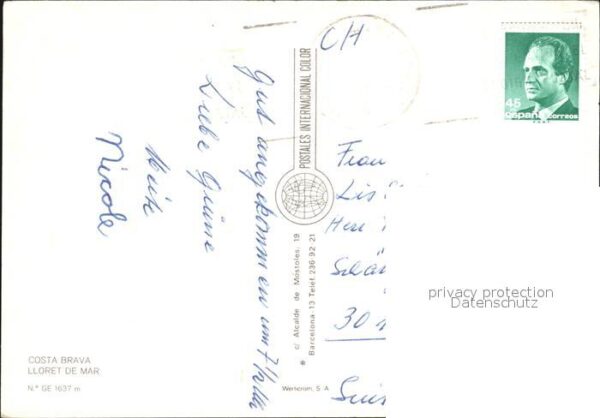 CH
Gut angekommen um 7 1/2 Uhr
Liebe Grüsse
Heidi
Nicole
POSTALES INTERNACIONAL COLOR
c/ Alcalde de Móstoles, 19
Barcelona-13 Telef. 236 92 21
Frau
Lis
Schä
30
Suis
45
españa correos
privacy protection
Datenschutz
COSTA BRAVA
LLORET DE MAR
N.º GE 1637 m
Wertcrom, S. A.